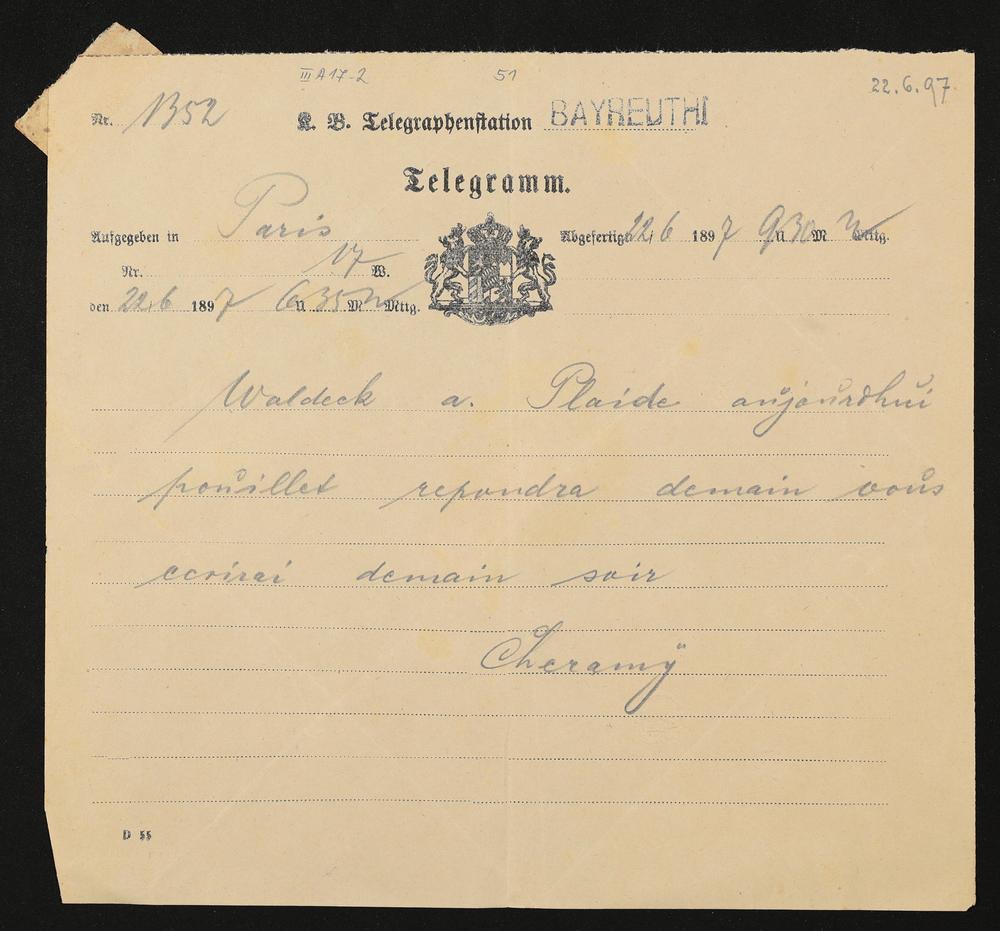 III A 17-2 51 22.6.97
Nr. B52 K. B. Telegraphenstation BAYREUTH I
Telegramm.
Aufgegeben in Paris Abgefertigt 22/6 1897 9 U. 30 M N Mttg.
Nr. 17 W.
den 22.6 1897 6 U. 35 M N Mttg.
Waldeck a. Plaide aujourdhui
pouillet repondra demain vous
ecrirai demain soir
Cheramÿ
D 55